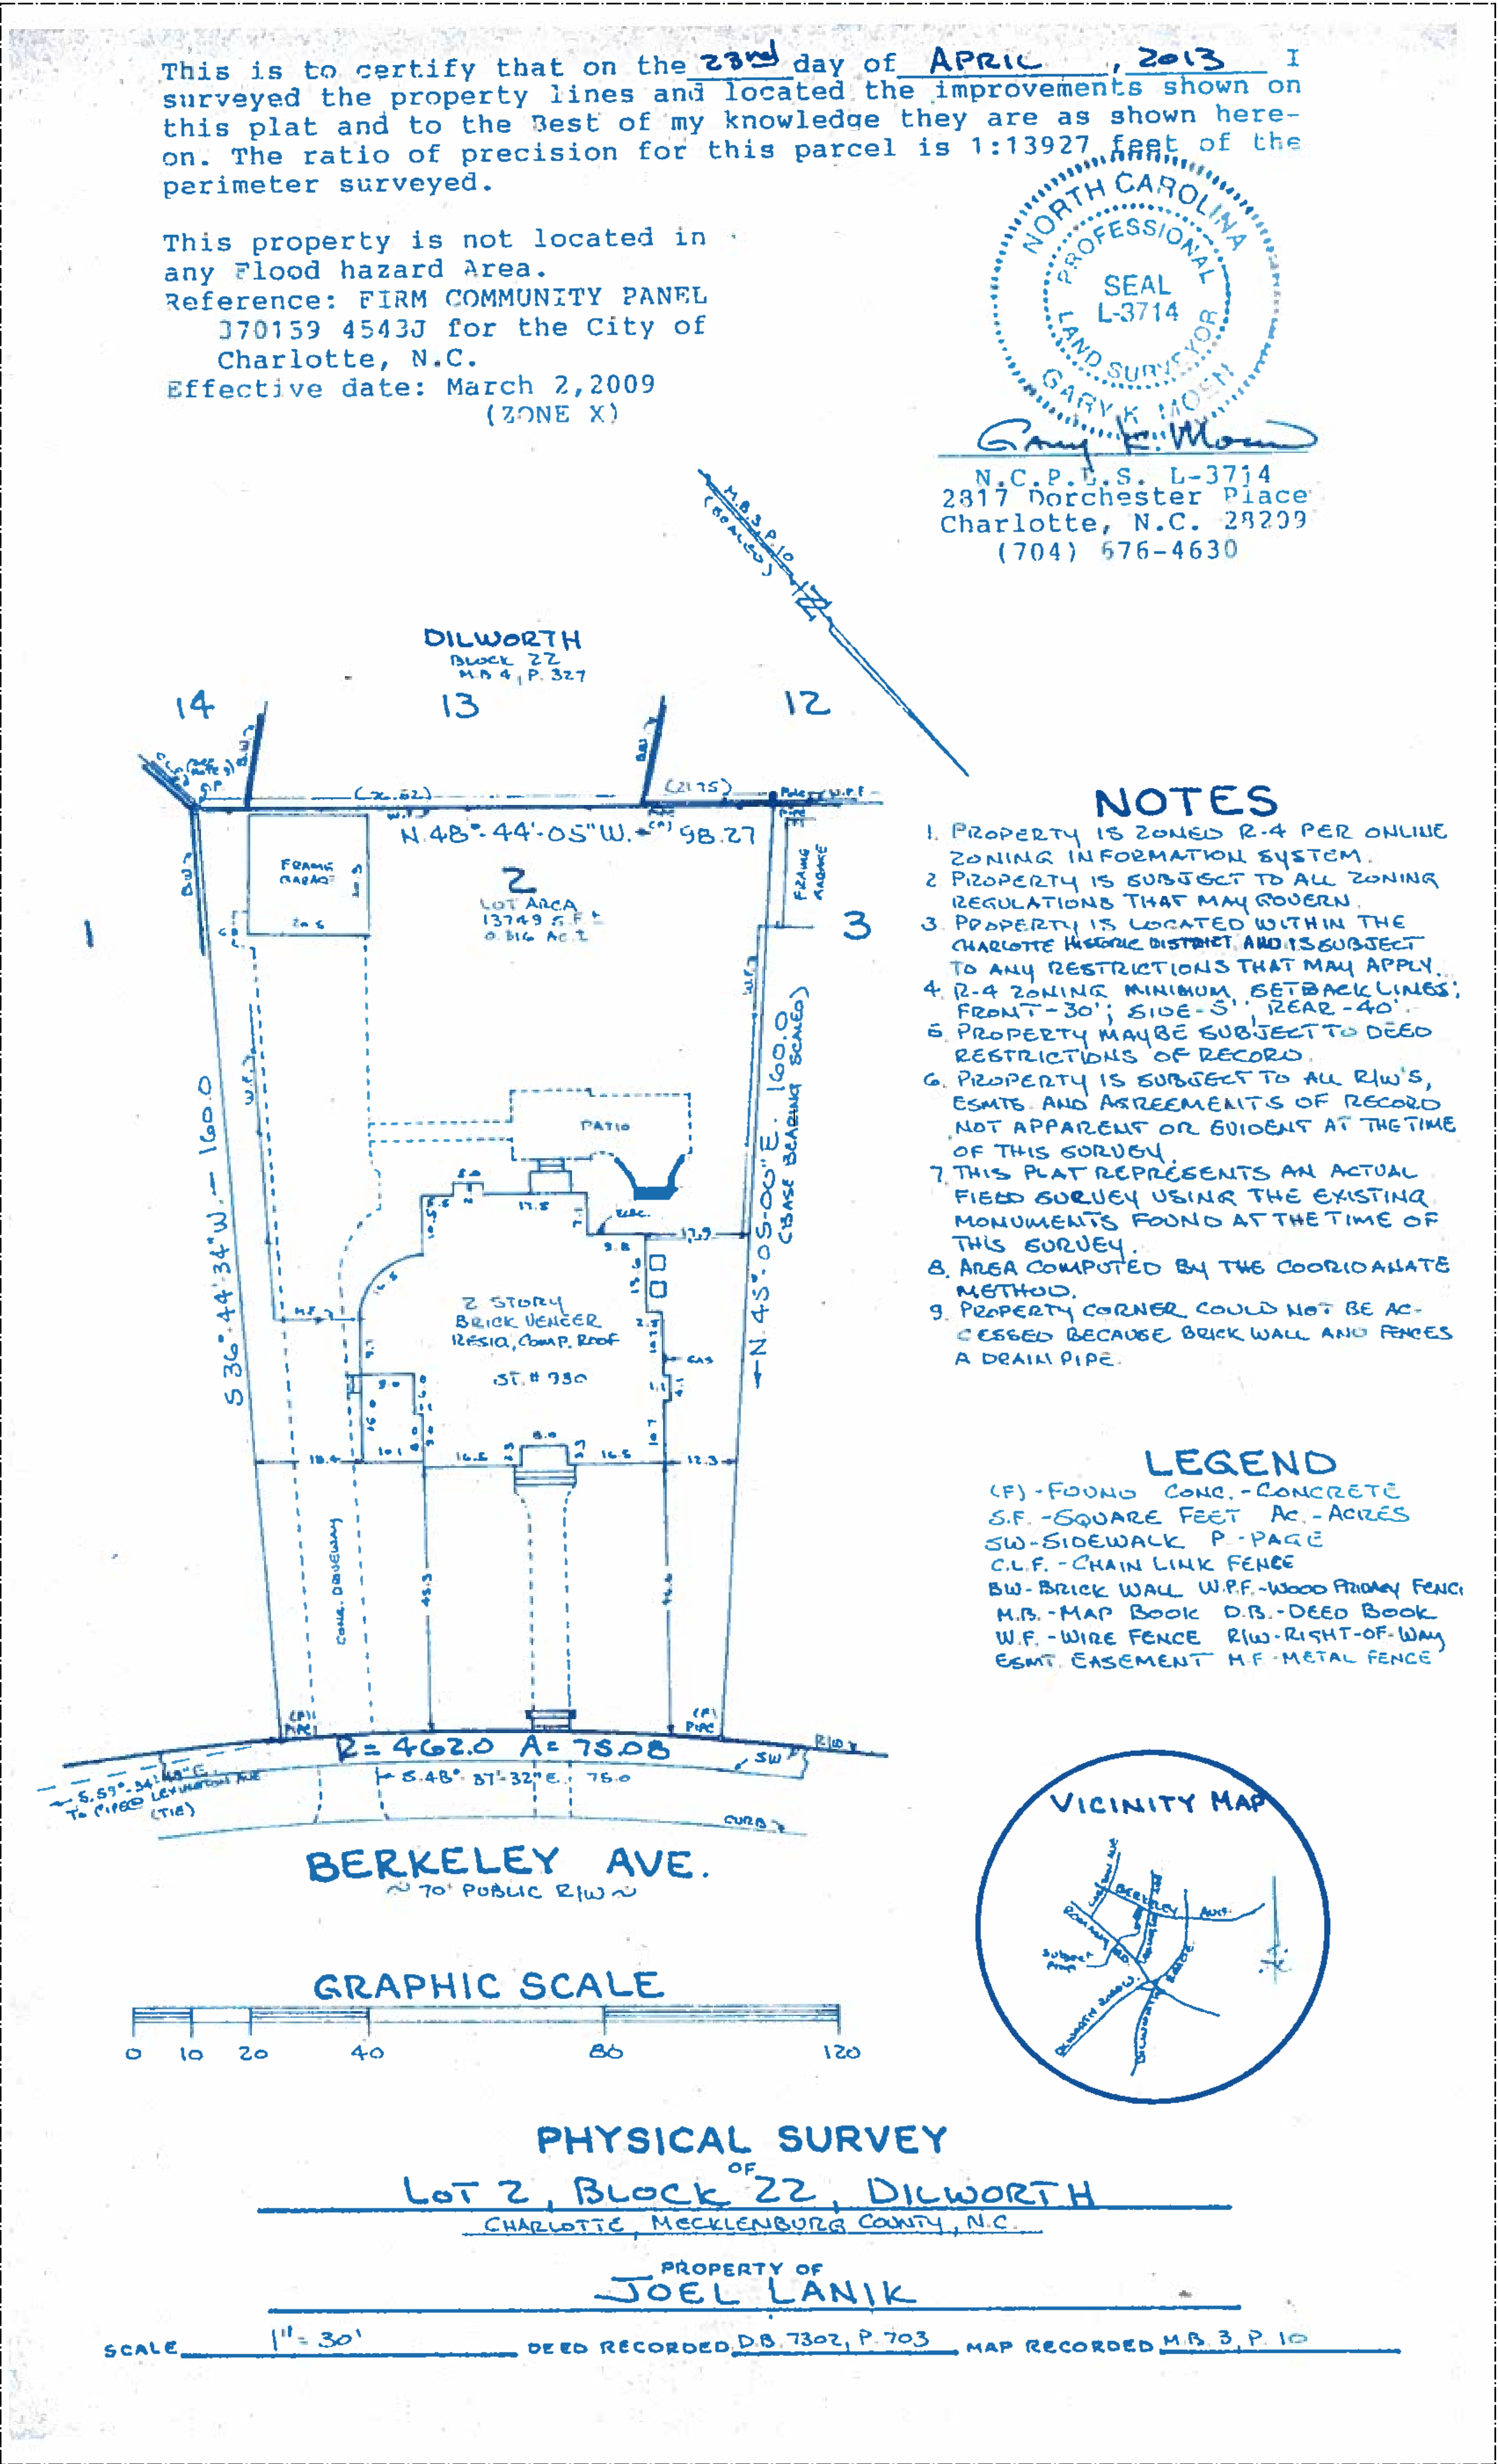 This is to certify that on the 23rd day of APRIL, 2013 I
surveyed the property lines and located the improvements shown on
this plat and to the Best of my knowledge they are as shown here-
on. The ratio of precision for this parcel is 1:13927 feet of the
perimeter surveyed.
This property is not located in
any Flood hazard Area.
Reference: FIRM COMMUNITY PANEL
370159 4543J for the City of
Charlotte, N.C.
Effective date: March 2,2009
(ZONE X)
NORTH CAROLINA
PROFESSIONAL
SEAL
L-3714
LAND SURVEYOR
GARY K. MOEN
Gary K. Moen
N.C.P.L.S. L-3714
2817 Dorchester Place
Charlotte, N.C. 28209
(704) 676-4630
M.B.3, P.10
(SCALED)
N
DILWORTH
BLOCK 22
M.B 4, P. 327
14
13
12
B.W.
B.W.
(21.75)
W.P.F.
N.48°-44'-05"W. 98.27
FRAME
GARAGE
20.5
2
LOT AREA
13749 S.F ±
0.316 AC.±
FRAME
GARAGE
1
3
BW
W.F.
W.F.
S 36°-44'-34"W. — 160.0
N.45°-05-00"E. 160.0
(BASE BEARING SCALED)
PATIO
5.0
17.5
7.1
ELEC.
9.8
17.9
10.5
13.6
2 STORY
BRICK VENEER
RESID, COMP. ROOF
ST. # 930
GAS
M.F.
9.7
9.0
16.0
10.1
18.4
16.5
8.0
16.5
10.7
12.3
CONC. DRIVEWAY
45.3
(F)
PIPE
(F)
PIPE
R= 462.0 A= 75.08
SW
R/W
S.48°-37'-32"E. 75.0
TO PIPE@ LEXINGTON AVE
(TIE)
CURB
BERKELEY AVE.
~ 70' PUBLIC R/W ~
NOTES
1. PROPERTY IS ZONED R-4 PER ONLINE
ZONING INFORMATION SYSTEM.
2 PROPERTY IS SUBJECT TO ALL ZONING
REGULATIONS THAT MAY GOVERN.
3. PROPERTY IS LOCATED WITHIN THE
CHARLOTTE HISTORIC DISTRICT AND IS SUBJECT
TO ANY RESTRICTIONS THAT MAY APPLY.
4. R-4 ZONING MINIMUM SETBACK LINES;
FRONT-30'; SIDE-5'; REAR-40'.
5. PROPERTY MAYBE SUBJECT TO DEED
RESTRICTIONS OF RECORD.
6. PROPERTY IS SUBJECT TO ALL R/W'S,
ESMTS. AND AGREEMENTS OF RECORD
NOT APPARENT OR EVIDENT AT THE TIME
OF THIS SURVEY.
7. THIS PLAT REPRESENTS AN ACTUAL
FIELD SURVEY USING THE EXISTING
MONUMENTS FOUND AT THE TIME OF
THIS SURVEY.
8. AREA COMPUTED BY THE COORIDANATE
METHOD.
9. PROPERTY CORNER COULD NOT BE AC-
CESSED BECAUSE BRICK WALL AND FENCES
A DRAIN PIPE.
LEGEND
(F)-FOUND CONC.-CONCRETE
S.F.-SQUARE FEET AC.-ACRES
SW-SIDEWALK P.-PAGE
C.L.F.-CHAIN LINK FENCE
BW-BRICK WALL W.P.F.-WOOD PRIVACY FENC
M.B.-MAP BOOK D.B.-DEED BOOK
W.F.-WIRE FENCE R/W-RIGHT-OF-WAY
ESMT. EASEMENT M.F-METAL FENCE
VICINITY MAP
BERKELEY AVE.
ROMANY RD.
SUBJECT
PROP.
GRAPHIC SCALE
0 10 20 40 80 120
PHYSICAL SURVEY
OF
LOT 2, BLOCK 22, DILWORTH
CHARLOTTE, MECKLENBURG COUNTY, N.C.
PROPERTY OF
JOEL LANIK
SCALE 1"=30' DEED RECORDED D.B. 7302, P. 703 MAP RECORDED M.B 3, P. 10